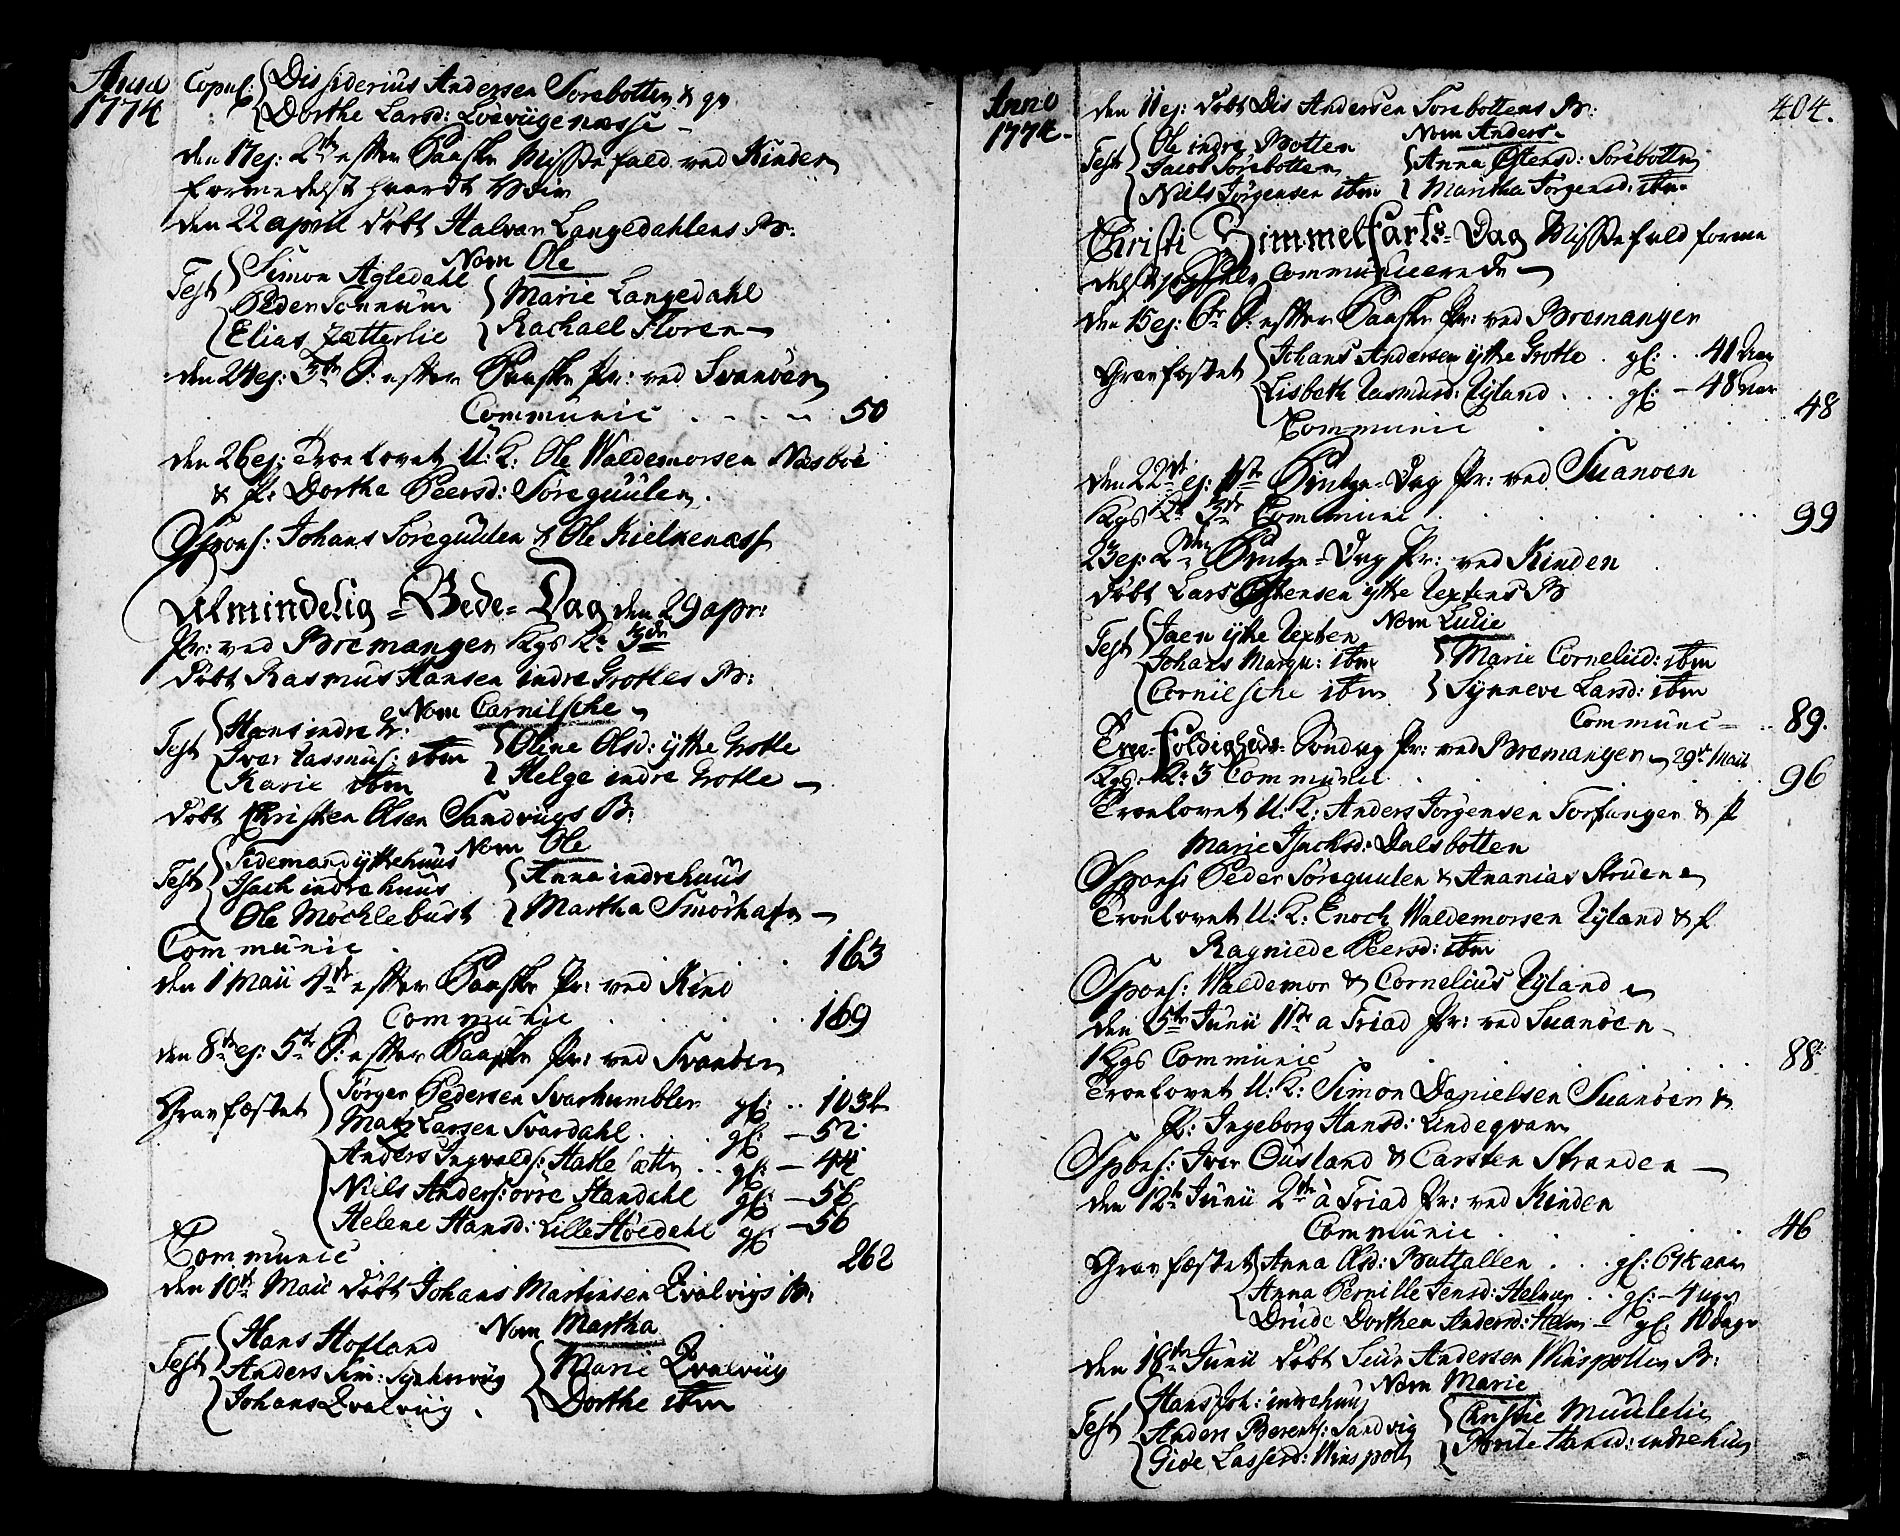 Anno 1774
Copul: Dissiderius Andersen Sørebotten &
Dorthe Larsd: Løevügenæsse
den 17 ej: 2den efter Paaske Messefald ved Kinden
formedelst haardt Veir
den 22 april døbt Halvar Langedahlens B:
Nom Ole
Test Simon Agledahl
Peder
Elias Zætterlie
Marie Langedahl
Rachael Floren
den 24 ej: 3die S: efter Paaske Pr: ved Svanöen
Communic 50
den 26 ej: Troelovet U: K: Ole Waldemorsen Næsböe
& P: Dorthe Peersd: Søreguulen
Spons: Johans Søregulen & Ole Kielkenæss
Almindelig-Bede-Dag den 29 apr:
Pr: ved Bremanger Kgs L: 3die
Døbt Rasmus Hansen indre Grotles B:
Nom Carnilsche
Test Hans indre Gr:
Iver Rasmus: ibm
Karie ibm
Oline Olsd: ytte Grotle
Helge indre Grotle
døbt Christen Olsen Sandvügs B:
Nom Ole
Test Tidemand yttrehuus
Isach indrehuus
Ole Möchlebust
Anna indrehuus
Martha Smörhafn
Communic 163
den 1 Maii 4de efter Paaske Pr: ved Kind
Communic 169
den 8de ej: 5te S: efter Paaske Pr: ved Svanöen
Gravfæstet Jørgen Pedersen Svarhumblen gl: 103
Matz Larsen Svardahl gl: 52
Anders Ingvalds: gl: 44
Niels Anders: øvre Standahl gl: 56
Helene Hansd: Lille Höedahl gl: 56
Communic 262
den 10de Maii døbt Johans Martinsen Qvalvigs B:
Nom Martha
Test Hans Hofland
Anders Sim:
Johans Qvalviig
Marie Qvalviig
Dorthe ibm
Anno 1774
404.
den 11 ej: døbt Dis Andersen Sørebottens B:
Nom Anders
Test Ole indre Botten
Jacob Sørebotten
Niels Jørgensen ibm
Anna Østensd: Sørebotten
Maritha Jørgensd: ibm
Christi Himmelfarts-Dag Messefald forme
delst Communicerende
den 15 ej: 6te S: efter Paaske Pr: ved Bremanger
Gravfæstet Johans Andersen ytte Grotle gl: 41 Aar
Lisbeth Rasmusd: Ryland gl: 48 Aar
Communic 48
den 22de ej: 1ste Pintze-Dag Pr: ved Suanöen
Kgs L: 3de Communic 99
23 ej: 2den Pintze-Dag Pr: ved Kinden
døbt Lars Østensen ytte Rextens B
Nom Lucie
Test Jaen ytte Rexten
Johans Margu: ibm
Cornilsche ibm
Marie Corneliid: ibm
Synneve Larsd: ibm
Communic 89.
Tree-Foldigheds-Søndag Pr: ved Bremanger 29de Maii
Kgs L: 3 Communic 96
Troelovet U: K: Anders Jørgensen Torfanger & P
Marie Isachsd: Dalsbotten
Spons: Peder Søreguulen & Ananias Struen
Troelovet U: K: Enoch Waldemorsen Ryland & P
Ragniede Peersd: ibm
Spons: Waldemor & Cornelius Ryland
den 5te Junii 1ste a Triad Pr: ved Suanöen
Kgs Communic 88
Troelovet U: K: Simon Danielsen Suanöen &
P: Ingeborg Hansd: Lindeqvam
Spons: Iver Ousland & Carsten Stranden
den 12te Junii 2den a Triad Pr: ved Kinden
Communic 46
Gravfæstet Anna Olsd: Battallen gl: 61½ aar
Anna Pernille Jensd: Helnør gl: 4 uger
Drude Dorthea Andersd: gl: 10 dage
den 18de Junii døbt Siur Andersen Winspollen B:
Nom Marie
Test Hans Joh: indrehuus
Anders Berents: Sandvig
Giøe Lasserd: Winspoll
Christie Muulelie
Berite Hansd: indrehuus